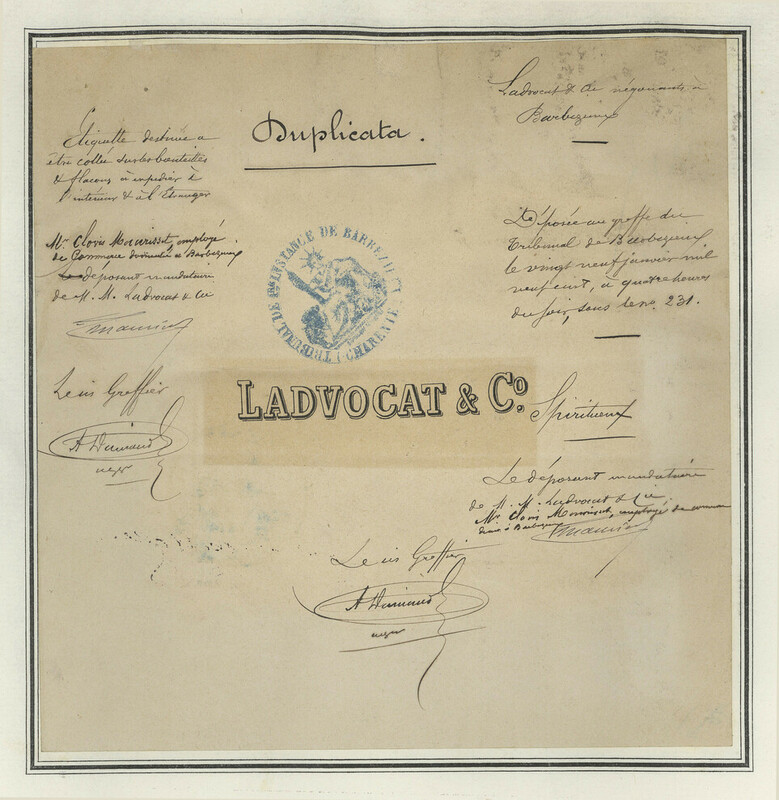 Duplicata.
Etiquette destinée a
être collée sur les bouteilles
& flacons à expedier à
l'intérieur & à l'Etranger
Mr Clovis Mourisset, employé
de Commerce domicilié à Barbezieux
déposant mandataire
de M. M. Ladvocat & Cie
Le Cis Greffier
A Durand
Ladvocat & Cie négociants à
Barbezieux
Déposée au greffe du
Tribunal de Barbezieux
le vingt neuf janvier mil
neuf cent, à quatre heures
du soir, sous le no. 231.
TRIBUNAL DE 1re INSTANCE DE BARBEZIEUX
(CHARENTE)
LADVOCAT & Co.
Spiritueux
Le déposant mandataire
de M. M. Ladvocat & Cie
Mr Clovis Mourisset, employé de commerce
à Barbezieux
Le Cis Greffier
A Durand